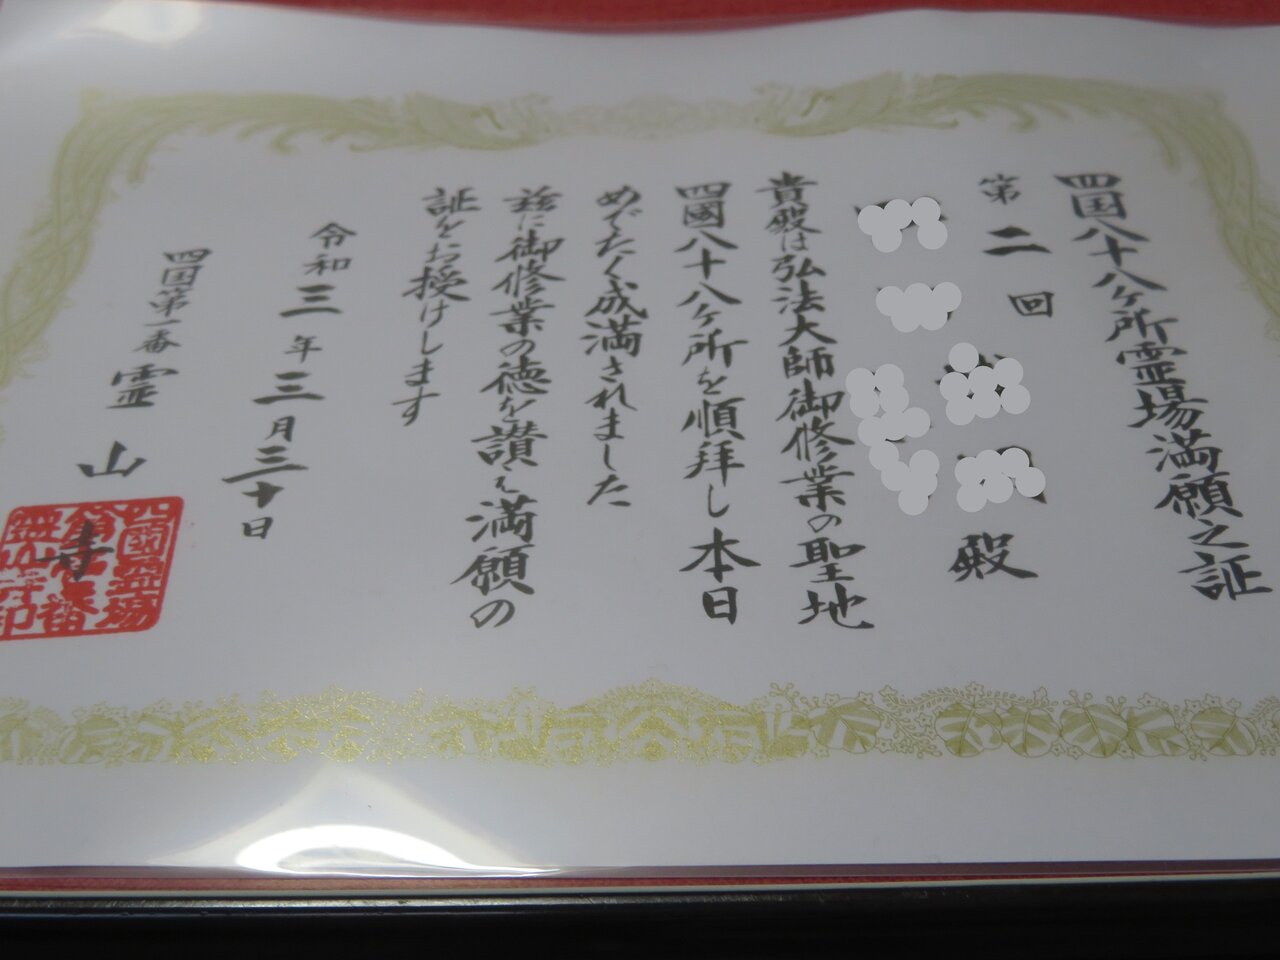 四国八十八ヶ所霊場満願之証
第二回
殿
貴殿は弘法大師御修業の聖地
四國八十八ヶ所を順拝し本日
めでたく成満されました
茲に御修業の徳を讃え満願の
証をお授けします
令和三年三月三十日
四国第一番霊山寺